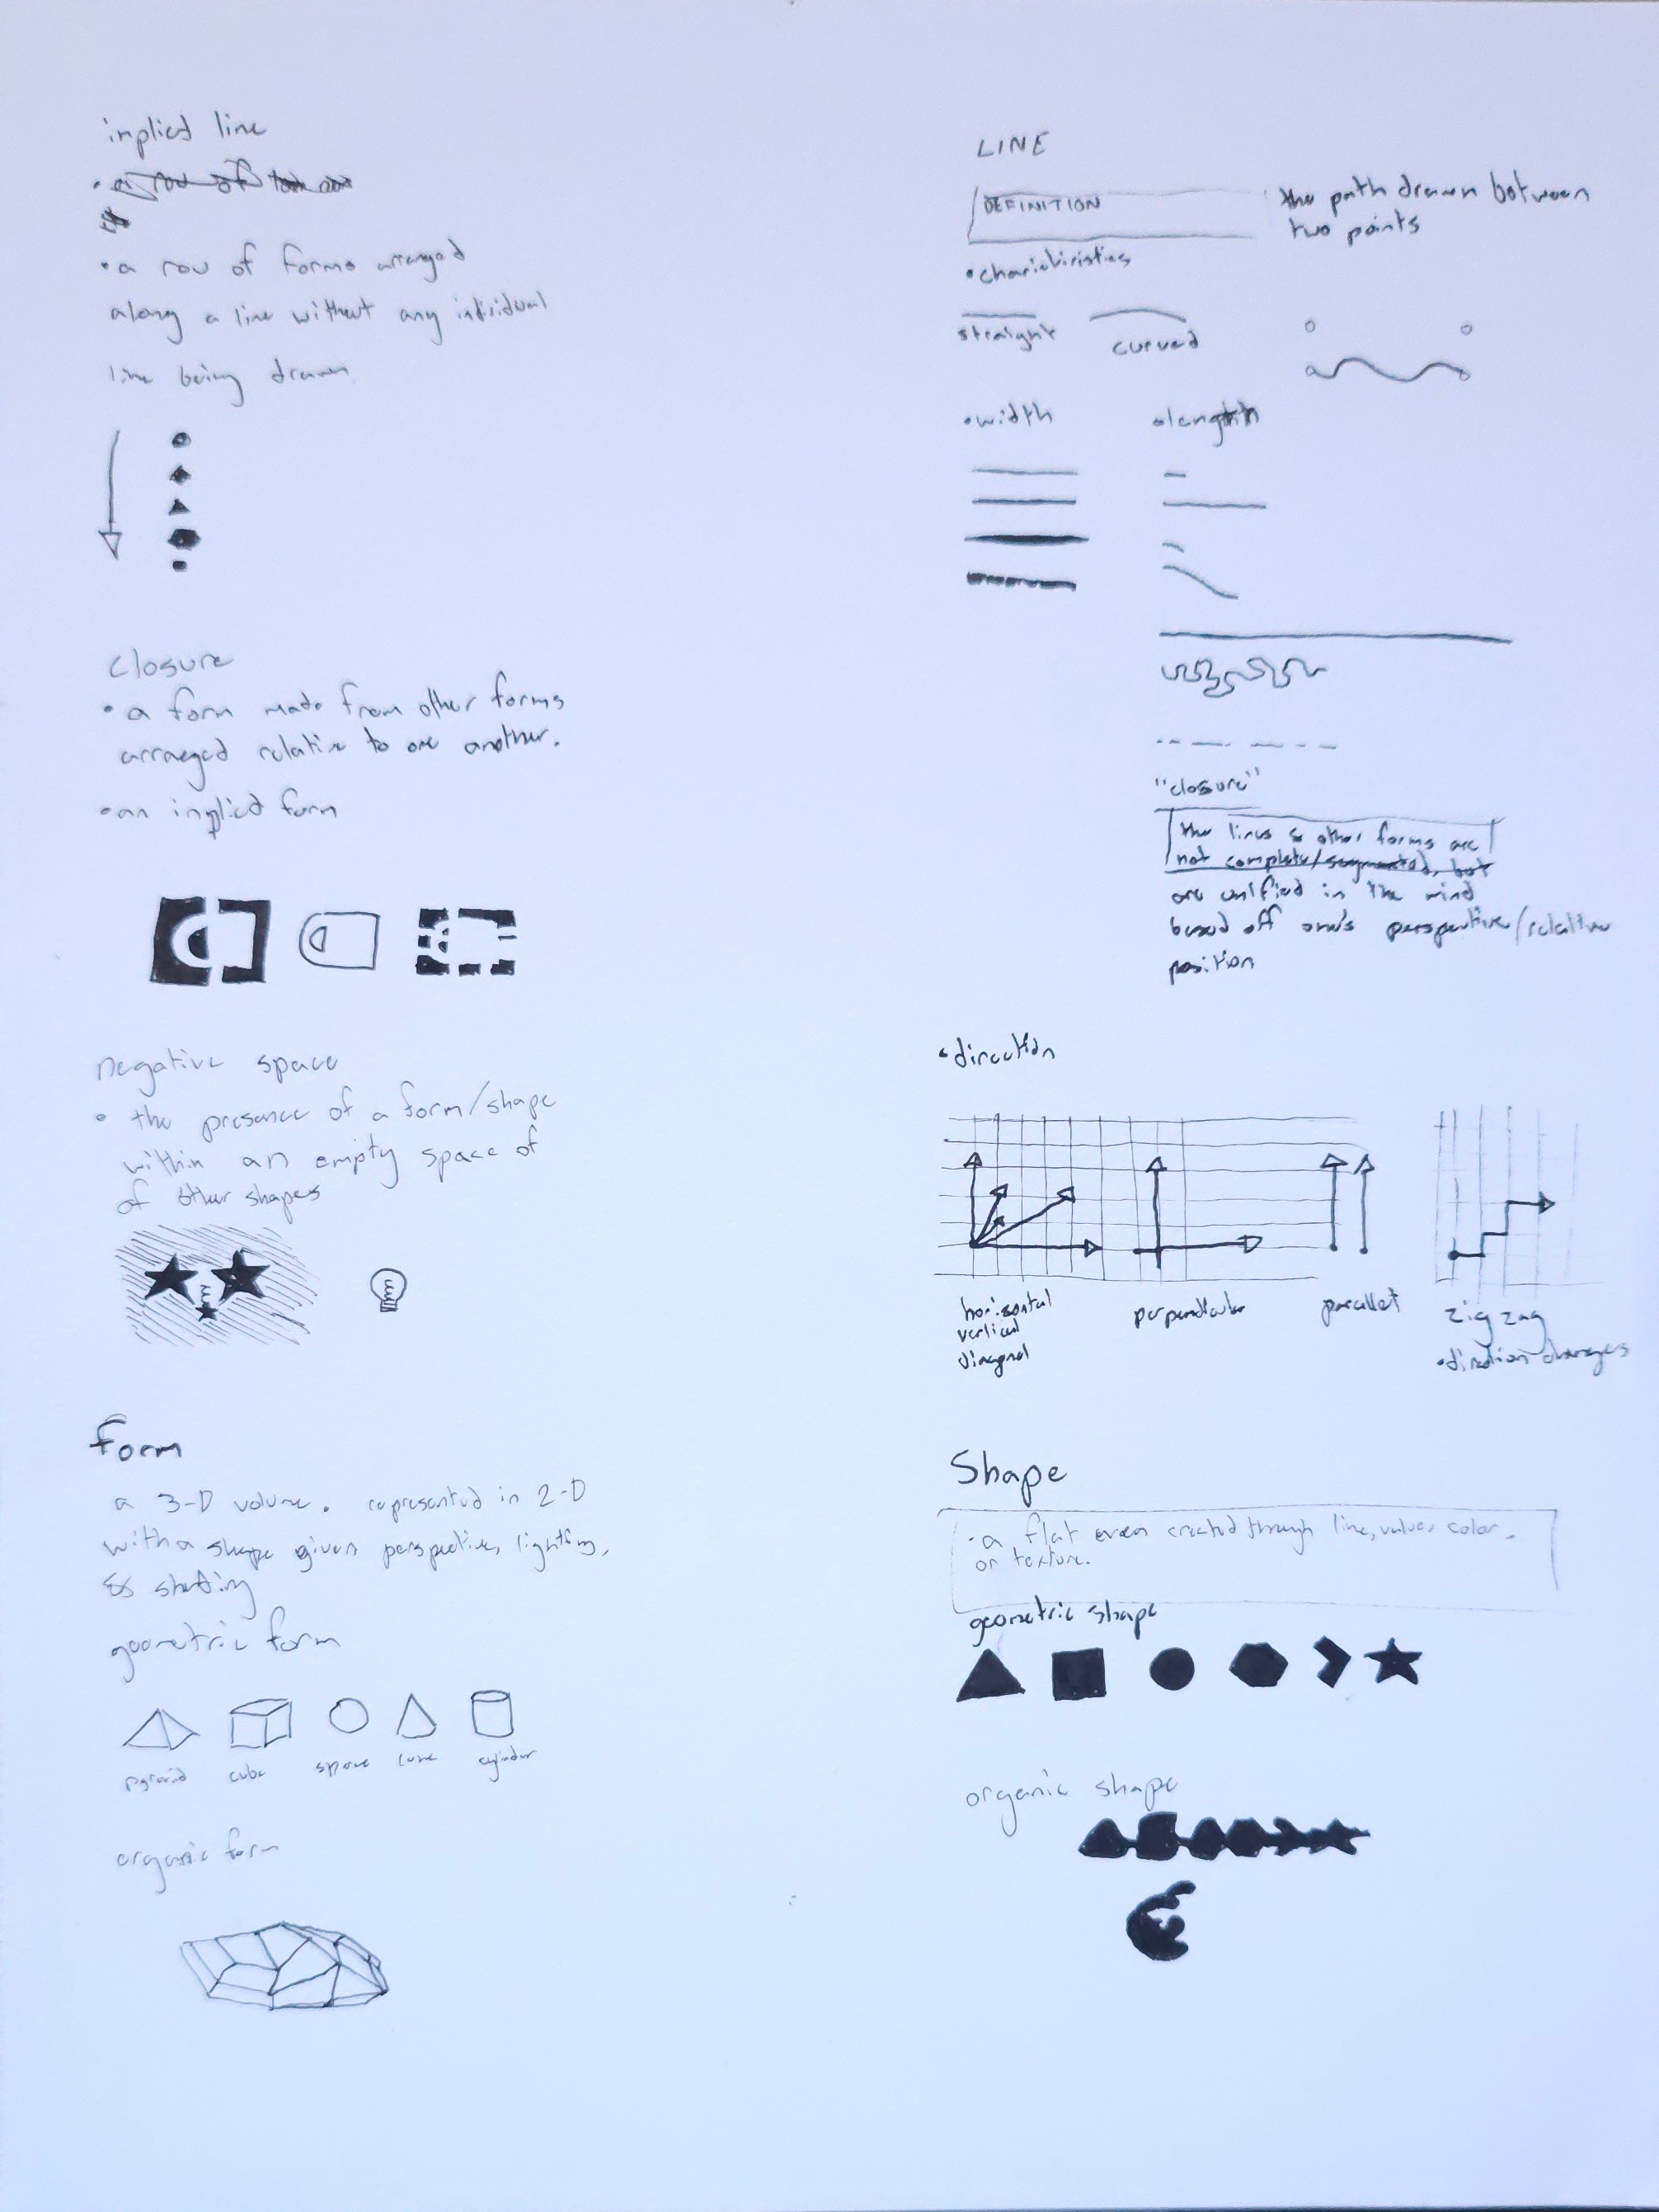 implied line
a row of
• a row of forms arranged
along a line without any individual
line being drawn
closure
• a form made from other forms
arraeged relative to one another.
• an implied form
negative space
• the presence of a form/shape
within an empty space of
of other shapes
form
a 3-D volume. represented in 2-D
with a shape given perspective, lighting,
& shading
geometric form
pyramid cube sphere cone cylinder
organic form
LINE
DEFINITION
the path drawn between
two points
straight curved
• width • length
"closure"
the lines & other forms are
not complete/segmented, but
are unified in the mind
based off one's perspective/relative
position
• direction
horizontal
vertical
diagnal
perpendicular
parallel
zig zag
• direction changes
Shape
• a flat area created through line, value, color,
or texture.
geometric shape
organic shape